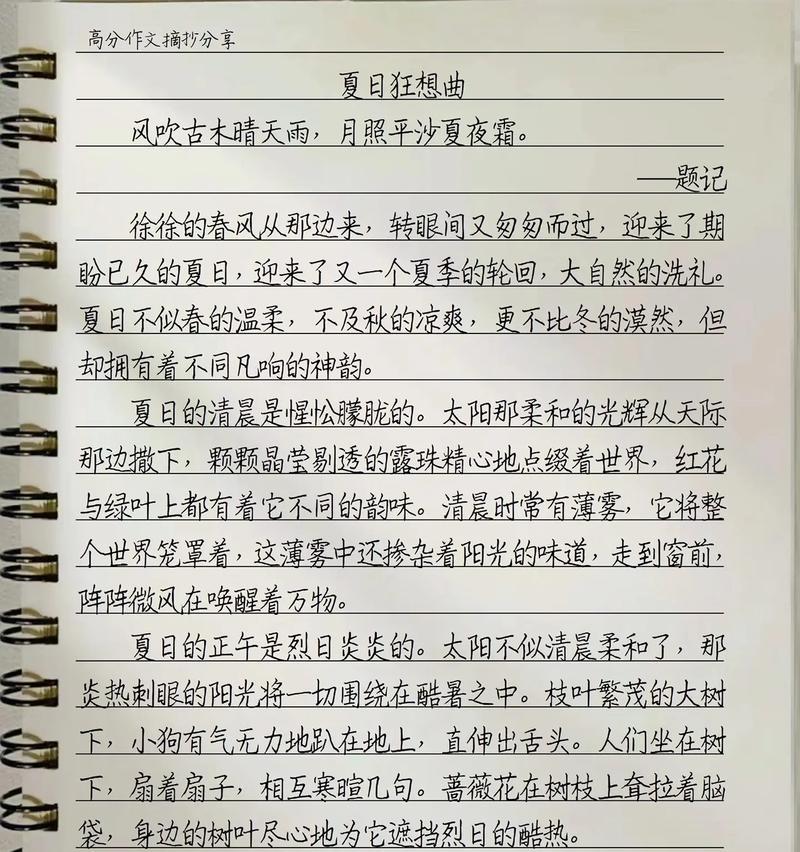 高分作文摘抄分享
夏日狂想曲
风吹古木晴天雨，月照平沙夏夜霜。
——题记
徐徐的春风从那边来，转眼间又匆匆而过，迎来了期
盼已久的夏日，迎来了又一个夏季的轮回，大自然的洗礼。
夏日不似春的温柔，不及秋的凉爽，更不比冬的漠然，但
却拥有着不同凡响的神韵。
夏日的清晨是惺忪朦胧的。太阳那柔和的光辉从天际
那边撒下，颗颗晶莹剔透的露珠精心地点缀着世界，红花
与绿叶上都有着它不同的韵味。清晨时常有薄雾，它将整
个世界笼罩着，这薄雾中还掺杂着阳光的味道，走到窗前，
阵阵微风在唤醒着万物。
夏日的正午是烈日炎炎的。太阳不似清晨柔和了，那
炎热刺眼的阳光将一切围绕在酷暑之中。枝叶繁茂的大树
下，小狗有气无力地趴在地上，直伸出舌头。人们坐在树
下，扇着扇子，相互寒暄几句。蔷薇花在树枝上耷拉着脑
袋，身边的树叶尽心地为它遮挡烈日的酷热。